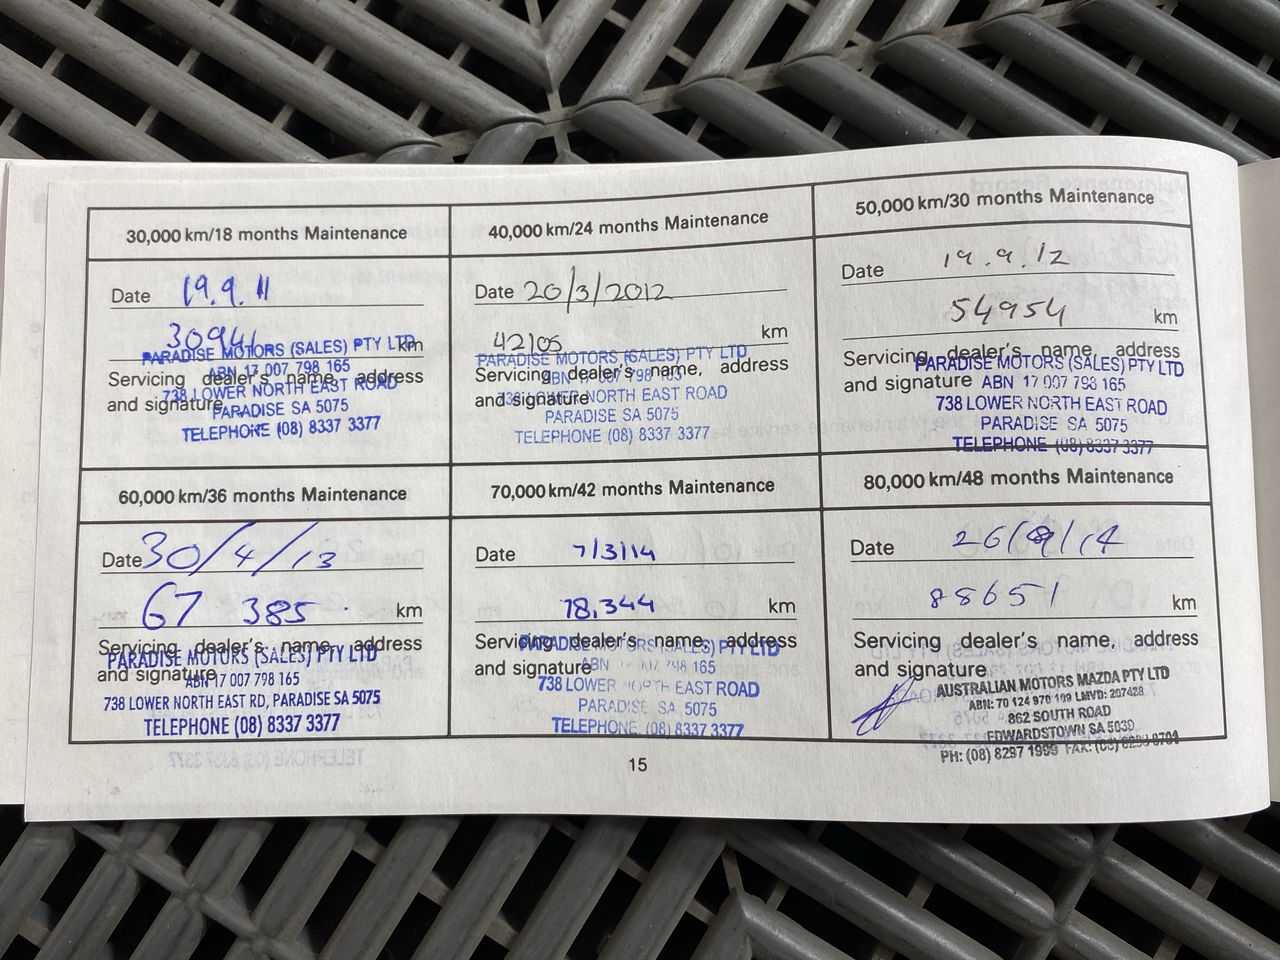 30,000 km/18 months Maintenance
Date 19.9.11
30941 km
Servicing dealer's name, address
and signature
PARADISE MOTORS (SALES) PTY LTD
ABN 17 007 798 165
738 LOWER NORTH EAST ROAD
PARADISE SA 5075
TELEPHONE (08) 8337 3377
40,000 km/24 months Maintenance
Date 20/3/2012
42105 km
Servicing dealer's name, address
and signature
PARADISE MOTORS (SALES) PTY LTD
ABN 17 007 798 165
738 LOWER NORTH EAST ROAD
PARADISE SA 5075
TELEPHONE (08) 8337 3377
50,000 km/30 months Maintenance
Date 19.9.12
54954 km
Servicing dealer's name, address
and signature
PARADISE MOTORS (SALES) PTY LTD
ABN 17 007 798 165
738 LOWER NORTH EAST ROAD
PARADISE SA 5075
TELEPHONE (08) 8337 3377
60,000 km/36 months Maintenance
Date 30/4/13
67 385 km
Servicing dealer's name, address
and signature
PARADISE MOTORS (SALES) PTY LTD
ABN 17 007 798 165
738 LOWER NORTH EAST RD, PARADISE SA 5075
TELEPHONE (08) 8337 3377
70,000 km/42 months Maintenance
Date 7/3/14
78,344 km
Servicing dealer's name, address
and signature
PARADISE MOTORS (SALES) PTY LTD
ABN 17 007 798 165
738 LOWER NORTH EAST ROAD
PARADISE SA 5075
TELEPHONE (08) 8337 3377
80,000 km/48 months Maintenance
Date 26/9/14
88651 km
Servicing dealer's name, address
and signature
AUSTRALIAN MOTORS MAZDA PTY LTD
ABN: 70 124 970 199 LMVD: 207428
862 SOUTH ROAD
EDWARDSTOWN SA 5039
PH: (08) 8297 1999 FAX: (08)
15